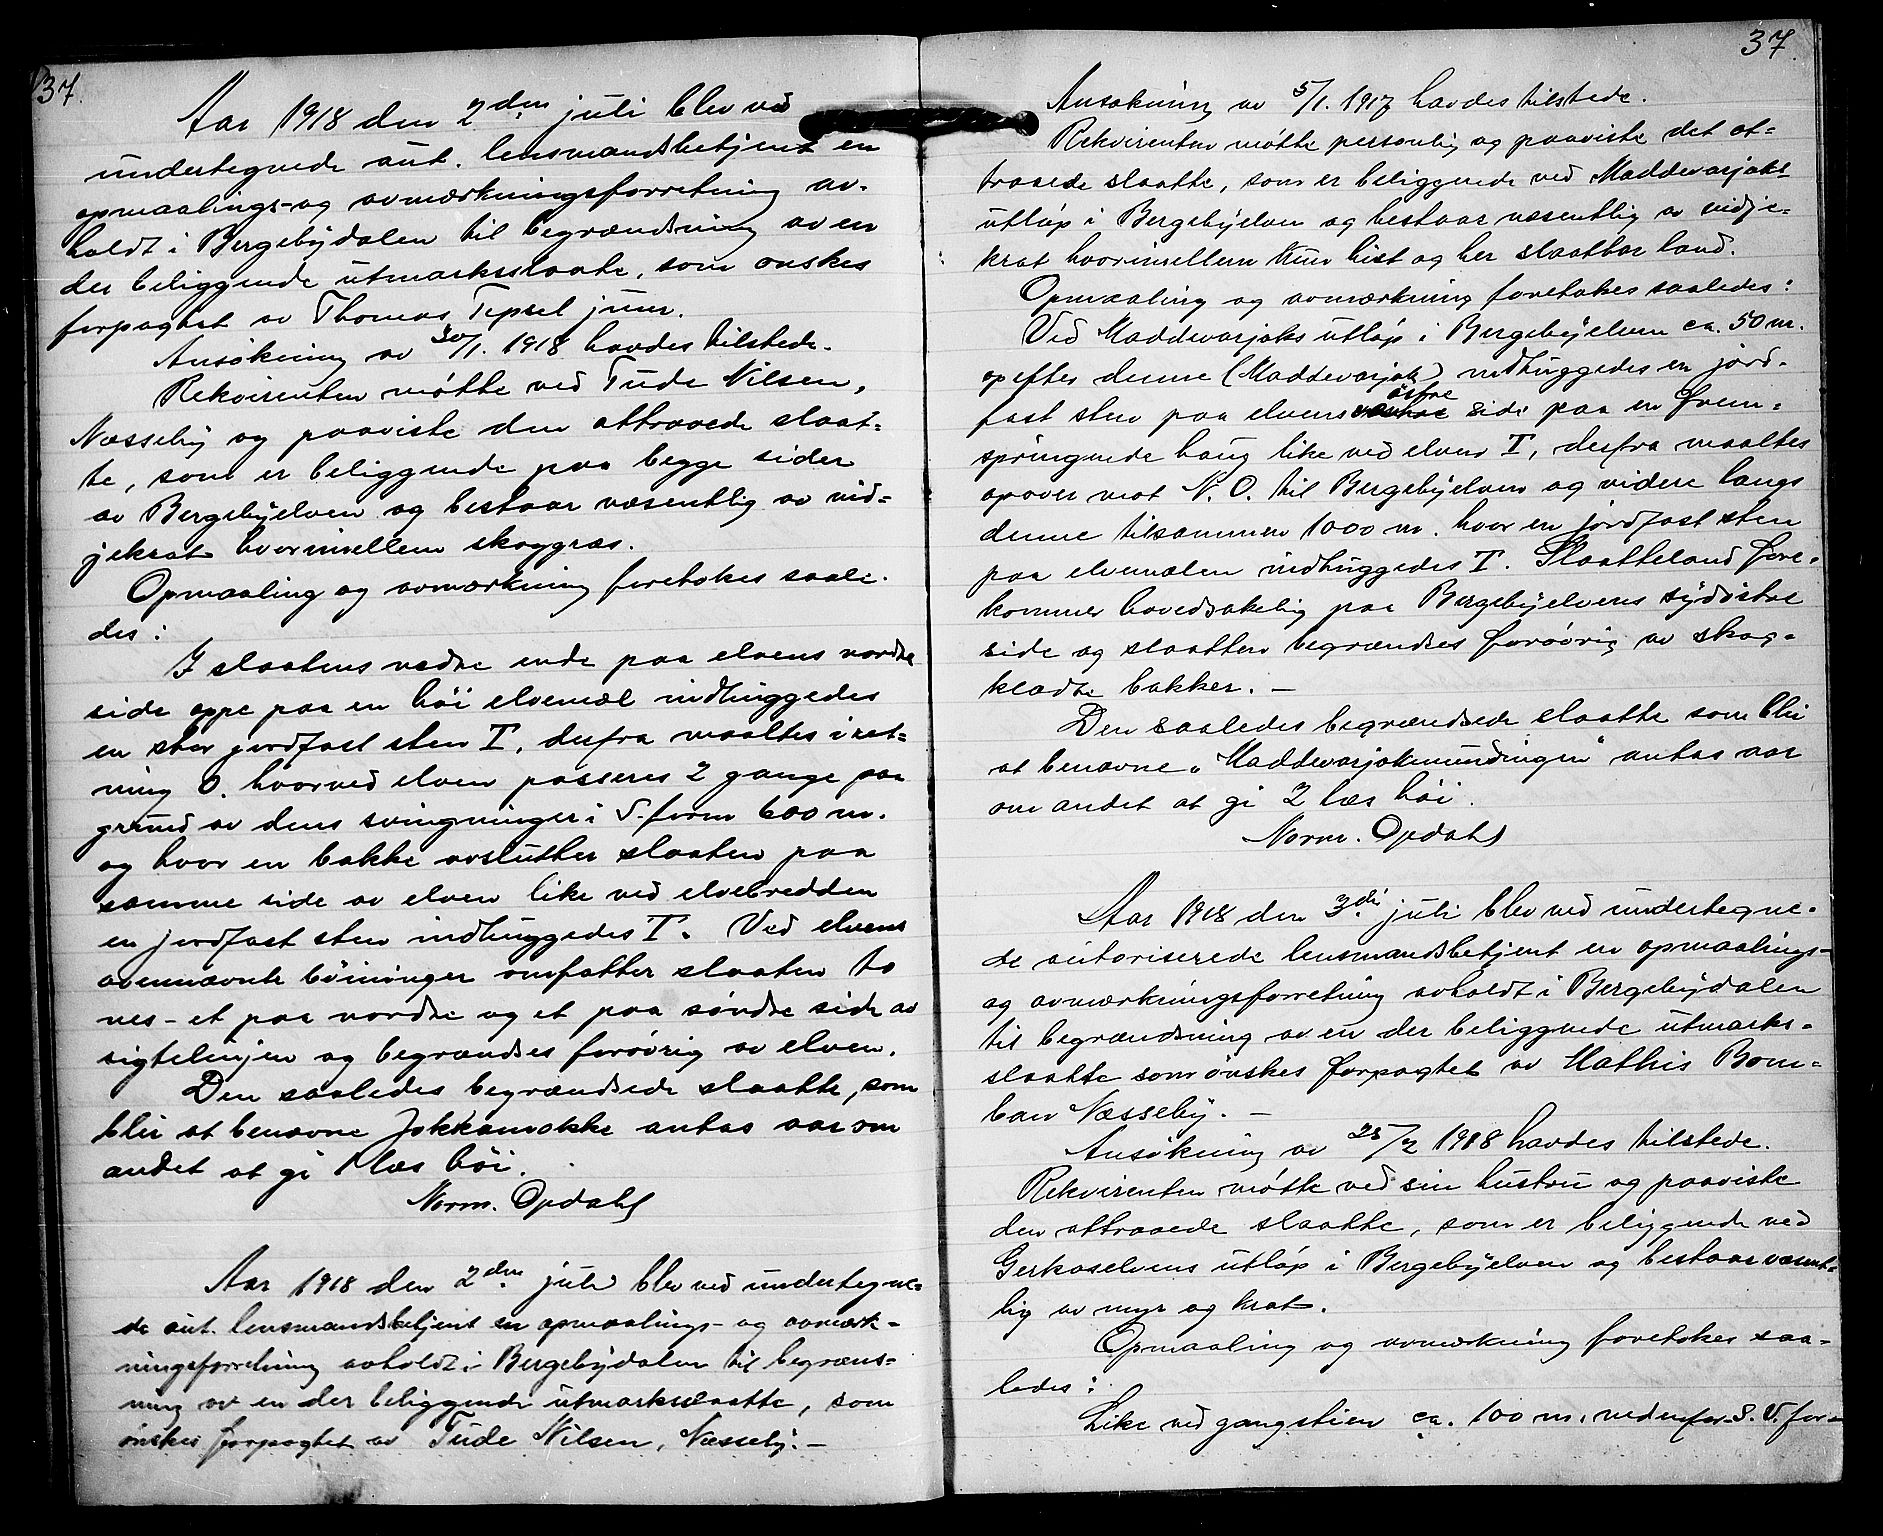 37.
Aar 1918 den 2den juli blev ved
undertegnede aut. lensmandsbetjent en
opmaalings- og avmærkningsforretning av-
holdt i Bergebydalen til begrændsning av en
der beliggende utmarksslaatte, som ønskes
forpagtet av Thomas Tepsel junr.
Ansökning av 30/1. 1918 havdes tilstede.
Rekvirenten møtte ved Tude Nilsen,
Næsseby og paaviste den attraaede slaat-
te, som er beliggende paa begge sider
av Bergebyelven og bestaar væsentlig av vid-
jekrat hvorimellem skoggras.
Opmaaling og avmærkning foretokes saale-
des:
I slaatens nedre ende paa elvens nordre
side oppe paa en høi elvemæl indhuggedes
en stor jordfast sten T, derfra maaltes i ret-
ning O. hvorved elven passeres 2 gange paa
grund av dens svingninger i S. form 600 m.
og hvor en bakke avslutter slaaten paa
samme side av elven like ved elvebredden
en jordfast sten indhuggedes T. Ved elvens
ovennævnte böininger omfatter slaaten to
nes - et paa nordre og et paa søndre side av
sigtelinjen og begrændses forøvrig av elven.
Den saaledes begrændsede slaatte, som
blir at benævne Jokkamokke antas aar om
andet at gi 1 læs höi.
Norm. Opdahl
Aar 1918 den 2den juli blev ved undertegne-
de aut. lensmandsbetjent en opmaalings- og avmærk-
ningsforretning avholdt i Bergebydalen til begræns-
ning av en der beliggende utmarksslaatte, som
ønskes forpagtet av Tude Nilsen, Næsseby. -
37.
Ansøkning av 5/1. 1917 havdes tilstede.
Rekvirenten møtte personlig og paaviste det at-
traaede slaatte, som er beliggende ved Maddevarjoks
utløp i Bergebyelven og bestaar væsentlig av vidje-
krat hvorimellem kun hist og her slaatbar land.
Opmaaling og avmærkning foretokes saaledes:
Ved Maddevarjoks utløp i Bergebyelven ca. 50 m.
opefter denne (Maddevarjok) indhuggedes en jord-
fast sten paa elvens østre side paa en frem-
springende haug like ved elven T, derfra maaltes
opover mot N. O. til Bergebyelven og videre langs
denne tilsammen 1000 m. hvor en jordfast sten
paa elvemælen indhuggedes T. Slaatteland fore-
kommer hovedsakelig paa Bergebyelvens sydöstre
side og slaatten begrændses forøvrig av skog-
klædte bakker. -
Den saaledes begrændsede slaatte som blir
at benævne "Maddevarjokmundingen" antas aar
om andet at gi 2 læs höi.
Norm. Opdahl
Aar 1918 den 3di juli blev ved undertegne-
de autoriserede lensmandsbetjent en opmaalings-
og avmærkningsforretning avholdt i Bergebydalen
til begrændsning av en der beliggende utmarks-
slaatte som ønskes forpagtet av Mathis Bom-
ban Næsseby. -
Ansökning av 25/2 1918 havdes tilstede.
Rekvirenten møtte ved sin hustru og paaviste
den attraaede slaatte, som er beliggende ved
Gerkaselvens utløp i Bergebyelven og bestaar væsent-
lig av myr og krat.
Opmaaling og avmærkning foretokes saa-
ledes:
Like ved gangstien ca. 100 m. nedenfor S. V. for